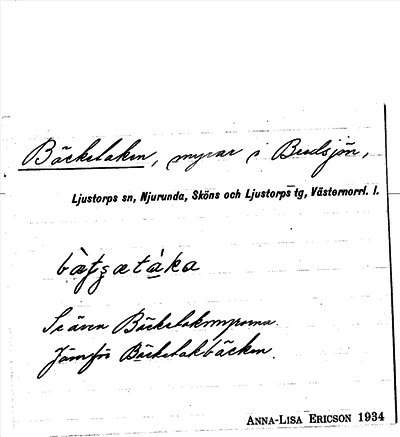 Bäckelaken, myrar i Bredsjön,
Ljustorps sn, Njurunda, Sköns och Ljustorps tg, Västernorrl. l.
Se även Bäckelakmyrorna.
Jämför Bäckelakbäcken.
ANNA-LISA ERICSON 1934